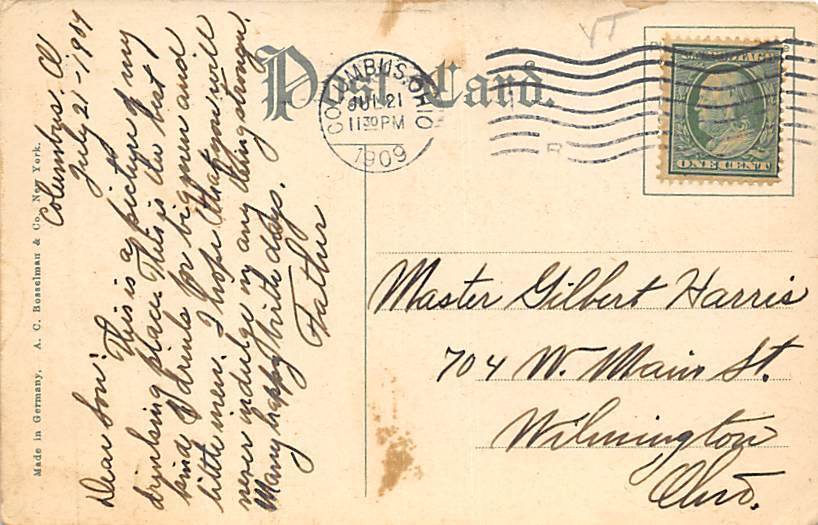 Post Card.
COLUMBUS, OHIO
JUL 21
11 30 PM
1909
U.S. POSTAGE
ONE CENT
VT
Made in Germany. A. C. Bosselman & Co., New York.
Columbus. O
July 21-1909
Dear Son:
This is a picture of my
drinking place. This is the best
kind of drinks for big men and
little men. I hope that you will
never indulge in any thing stronger.
Many happy birth days.
Father
Master Gilbert Harris
704 W. Main St.
Wilmington
Ohio.